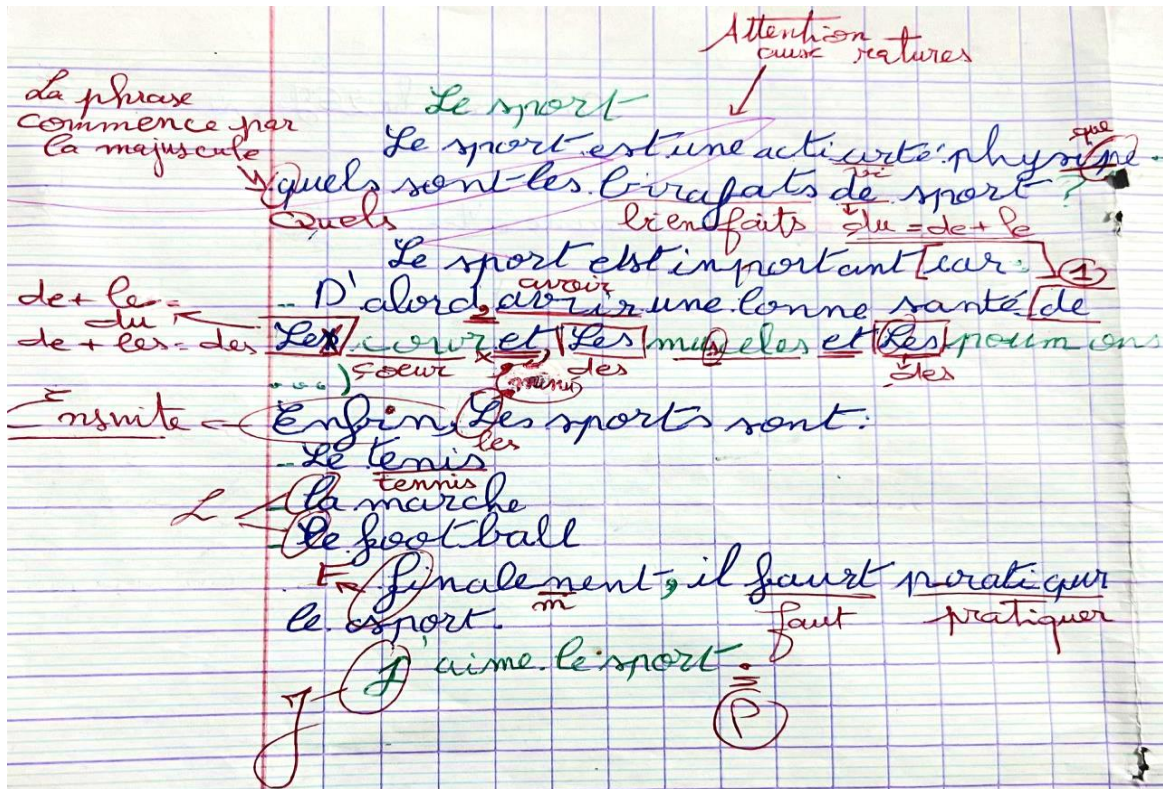 Attention
aux ratures
La phrase
commence par
la majuscule
Le sport
Le sport est une acti urté physi ne.
que
vi
quels sont les birafats de sport ?
Quels
bienfaits du = de + le
Le sport elst inportant [car : ] 1
avoir
- D'alord, avrir une lonne santé [de
de + le =
du
de + les = des
Les cour et Les muscles et Les poumons
coeur
des
des
...)
Ensuite
Enfin, Les sports sont :
les
- Le tenis
tennis
- la marche
L
- le football
F
finalenent, il faurt pratiqur
m
faut pratiquer
le sport.
J'aime le sport.
J
P